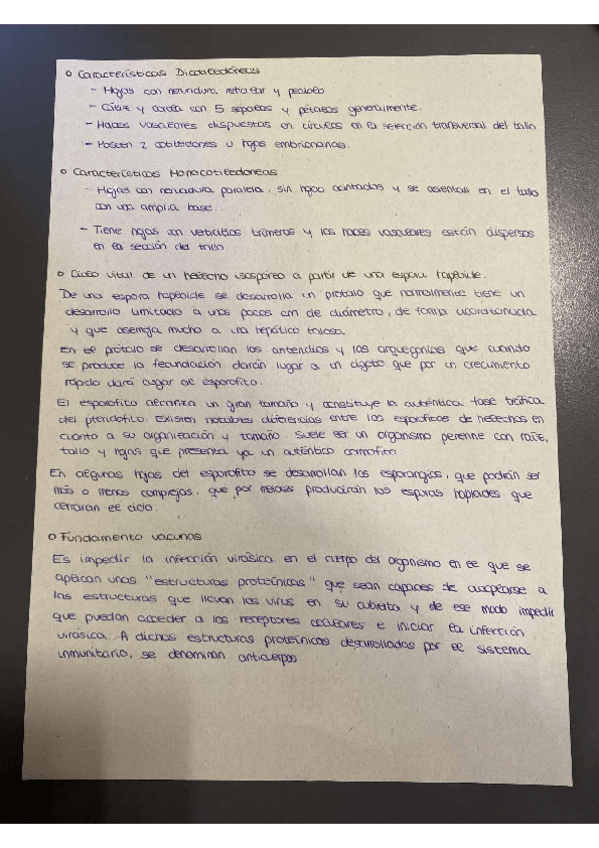 o Características Dicotiledóneas
- Hojas con nervadura reticular y peciolo
- Cáliz y corola con 5 sépalos y pétalos generalmente.
- Haces vasculares dispuestas en círculos en la selección transversal del tallo
- Poseen 2 cotiledones u hojas embrionarias.
o Características Monocotiledoneas
- Hojas con nervadura paralela, sin hojas acintadas y se asientan en el tallo
con una amplia base.
- Tiene hojas con verticilos trímeros y los haces vasculares están dispersos
en la sección del tallo
o Ciclo vital de un helecho isospóreo a partir de una espora haploide.
De una espora haploide se desarrolla un protalo que normalmente tiene un
desarrollo limitado a unos pocos cm de diámetro, de forma acorazonada
y que asemeja mucho a una hepática talosa.
En el protalo se desarrollan los anteridios y los arquegonios que cuando
se produce la fecundación darán lugar a un cigoto que por un crecimiento
rápido dará lugar al esporofito.
El esporofito alcanza un gran tamaño y constituye la auténtica fase trófica
del pteridofito. Existen notables diferencias entre los esporofitos de helechos en
cuanto a su organización y tamaño. Suele ser un organismo perenne con raíz,
tallo y hojas que presenta ya un auténtico cormofito
En algunas hojas del esporofito se desarrollan los esporangios, que podrán ser
más o menos complejos, que por meiosis producirán las esporas haploides que
cerraran el ciclo.
o Fundamento vacunas
Es impedir la infección virásica en el cuerpo del organismo en el que se
aplican unas "estructuras proteínicas" que sean capaces de acoplarse a
las estructuras que llevan los virus en su cubierta y de ese modo impedir
que puedan acceder a los receptores celulares e iniciar la infección
virásica. A dichas estructuras proteínicas desarrolladas por el sistema
inmunitario, se denominan anticuerpos